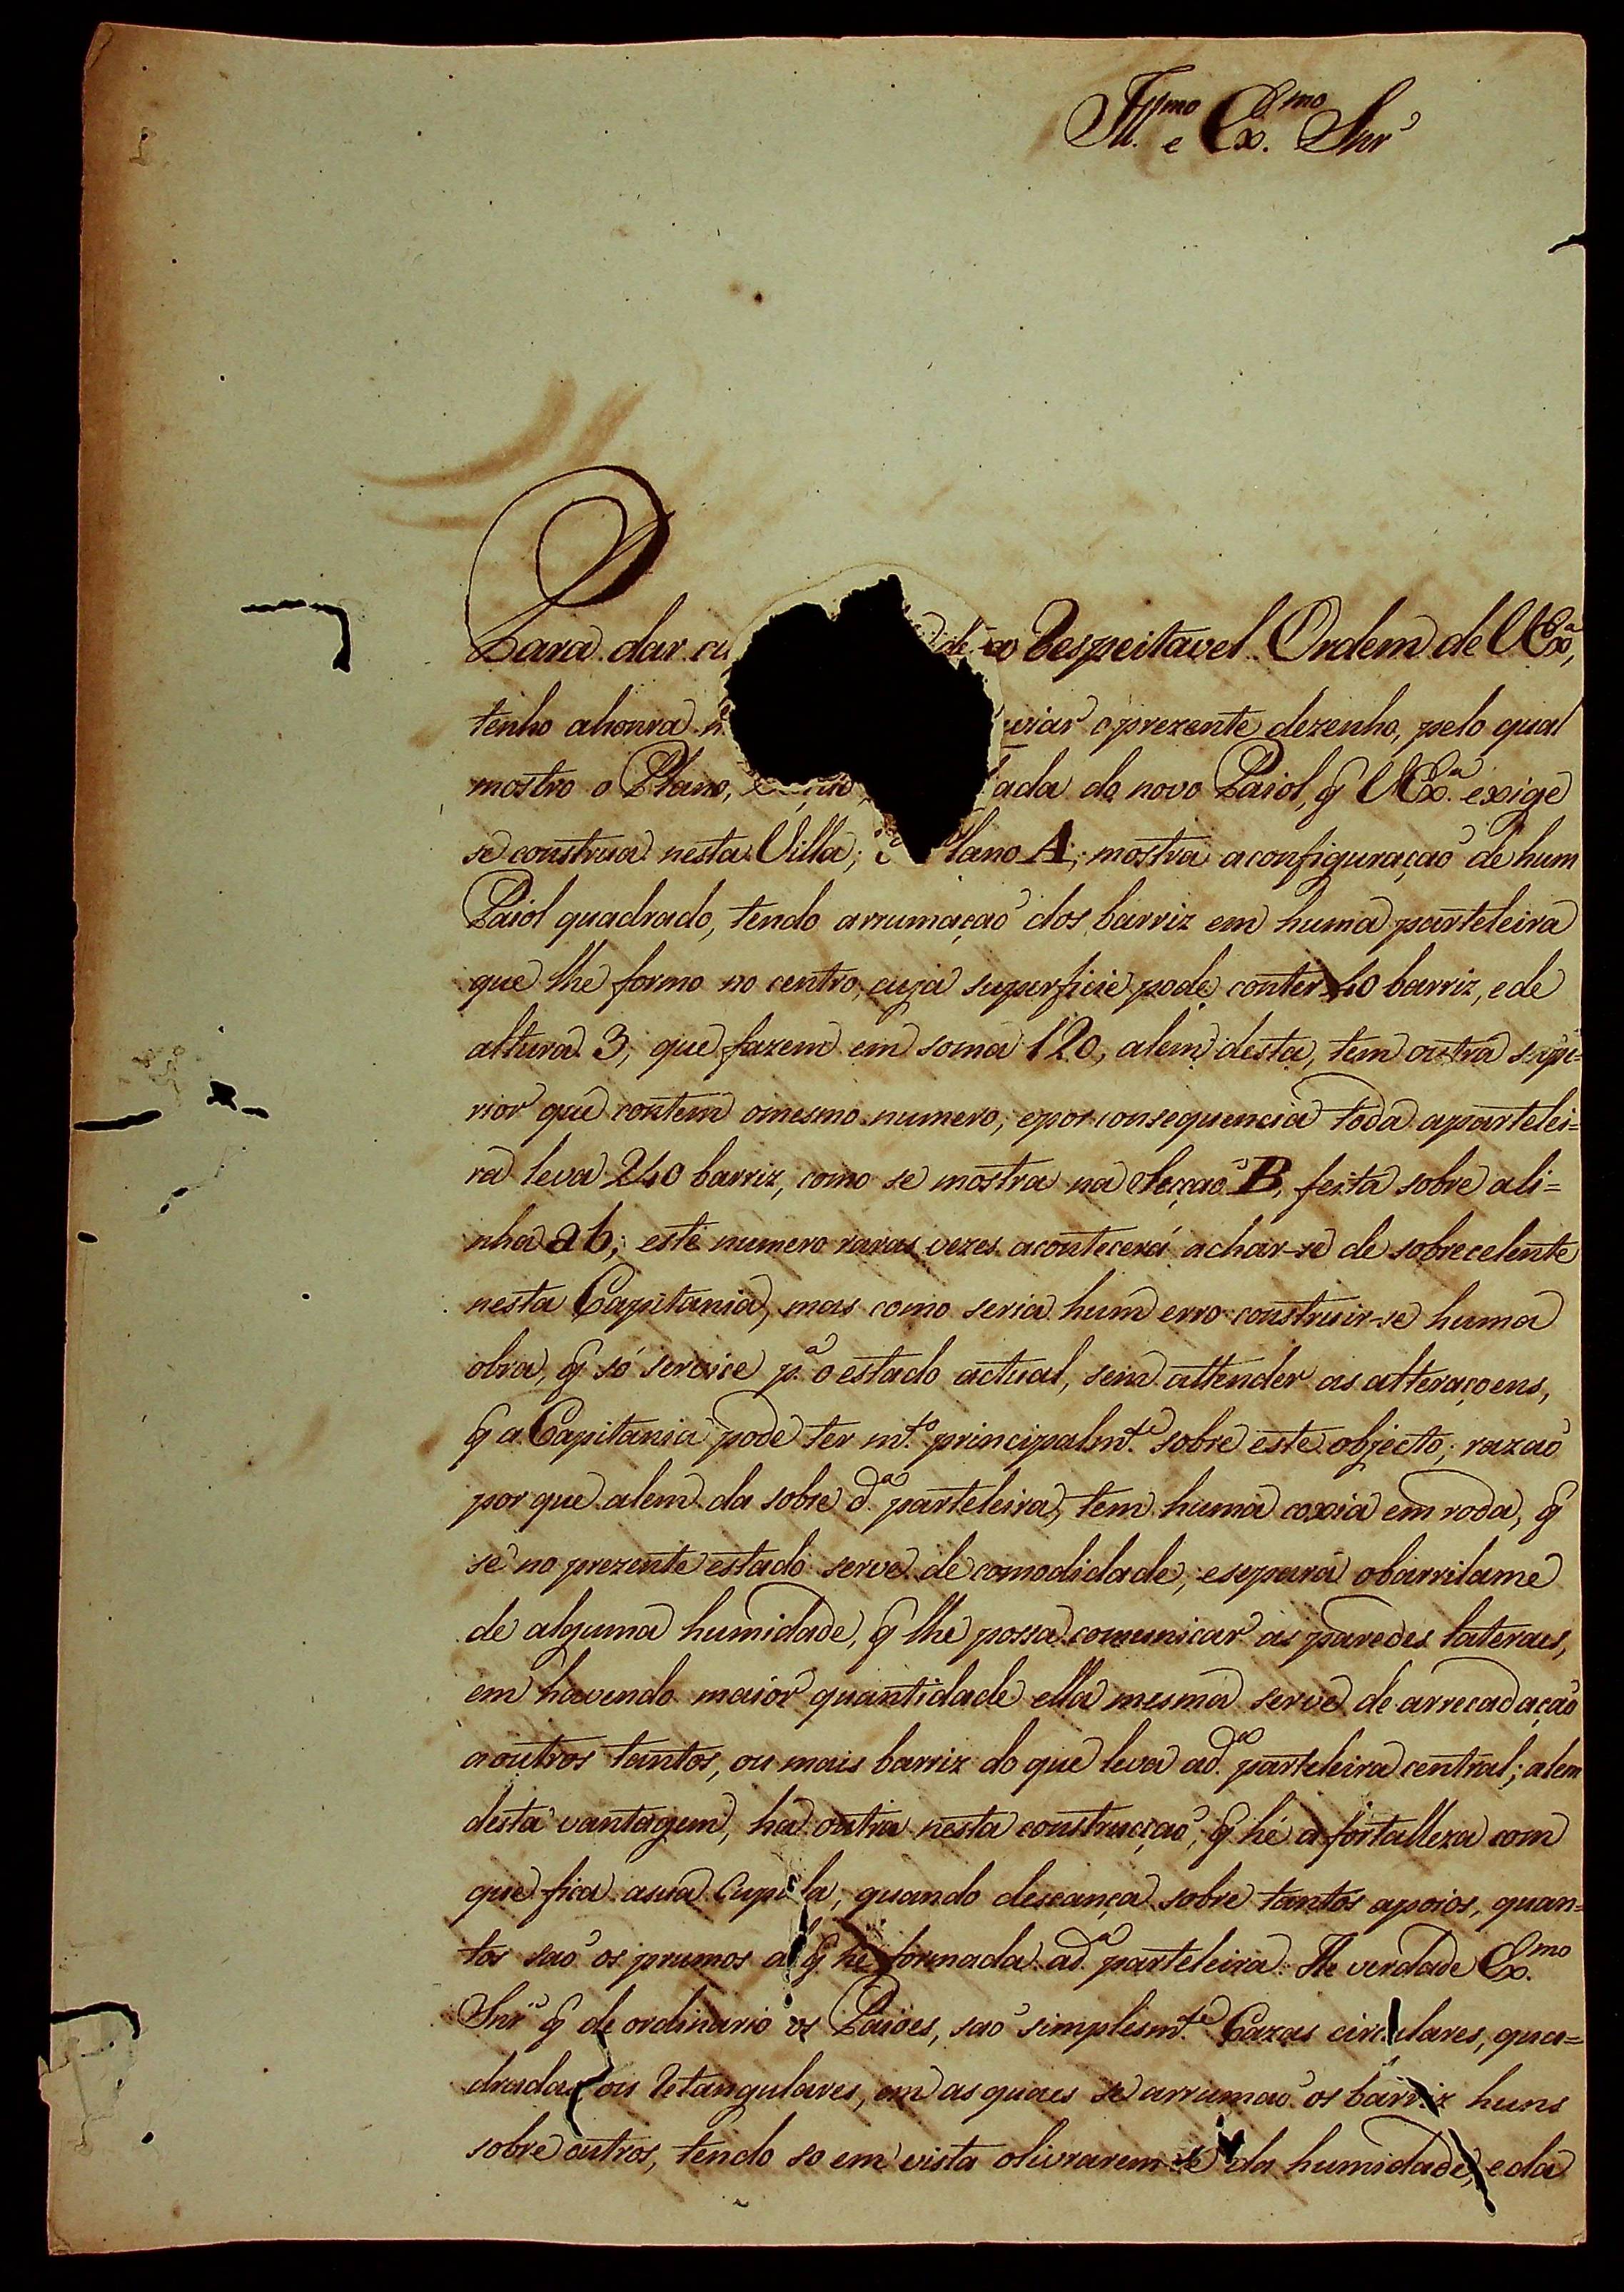 Ill.mo e Ex.mo Snr
Para dar cu de a Respeitavel Ordem de V Ex.a,
tenho ahonra viar oprezente dezenho, pelo qual
mostro o Plano, ada do novo Paiol, q V Ex.a exige
se construa nesta Villa; lano A; mostra aconfiguraçaõ de hum
Paiol quadrado, tendo arrumaçaõ dos barriz em huma parteleira
que lhe formo no centro, cuja superficie pode conter 40 barriz, ede
altura 3, que fazem em soma 120, alem desta, tem outra supe=
rior que contem omesmo numero, epor consequencia toda apartelei=
ra leva 240 barriz, como se mostra na Secçaõ B, feita sobre ali=
nha ab; este numero raras vezes acontecerá achar-se de sobrecelente
nesta Capitania, mas como seria hum erro construir-se huma
obra, q só service p.a o estado actual, sem attender as alteraçoens,
q a Capitania pode ter m.to principalm.te sobre este objecto; razaõ
por que alem da sobre d.a parteleira, tem huma coxia em roda, q
se no prezente estado serve de comodidade, esepara obarrilame
de alguma humidade, q lhe possa comunicar as paredes lateraes,
em havendo maior quantidade ella mesma serve de arrecadaçaõ
aoutros tantos, ou mais barriz do que leva ad.a parteleira central; alem
desta vantagem, ha outra nesta construcçaõ, q hé a fortalleza com
que fica asua Cupula, quando descança sobre tantos apoios, quan=
tos saõ os prumos a q he formada ad.a parteleira. He verdade Ex.mo
Snr q de ordinario os Paioes, saõ simplesm.te Cazas circulares, qua=
dradas ou Retangulares, em as quaes se arrumaõ os barriz huns
sobre outros, tendo so em vista olivrarem-se da humidade, e da